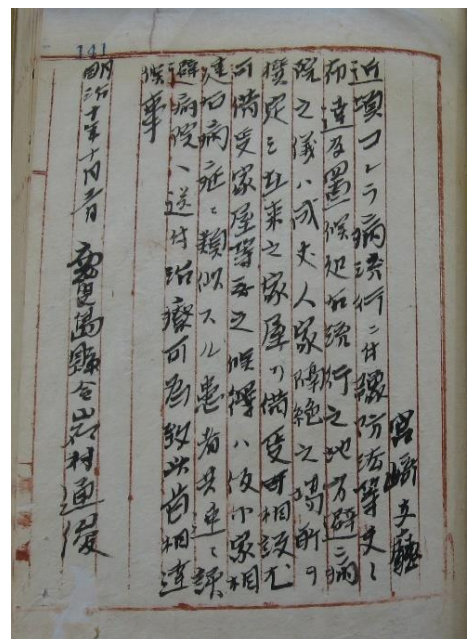 141
宮崎支廳
近頃コレラ病流行ニ付豫防法等夫々
布達及置候処右流行之地方避病
院之儀ハ成丈人家隔絶之場所ヲ
撰定シ在来之家屋ヲ借受可相設尤
可借受家屋等無之候得ハ仮小家相
建右病症ニ類似スル患者共速ニ該
避病院ヘ送付治療可為致此旨相達
候事
明治十年十月 鹿児島縣令岩村通俊